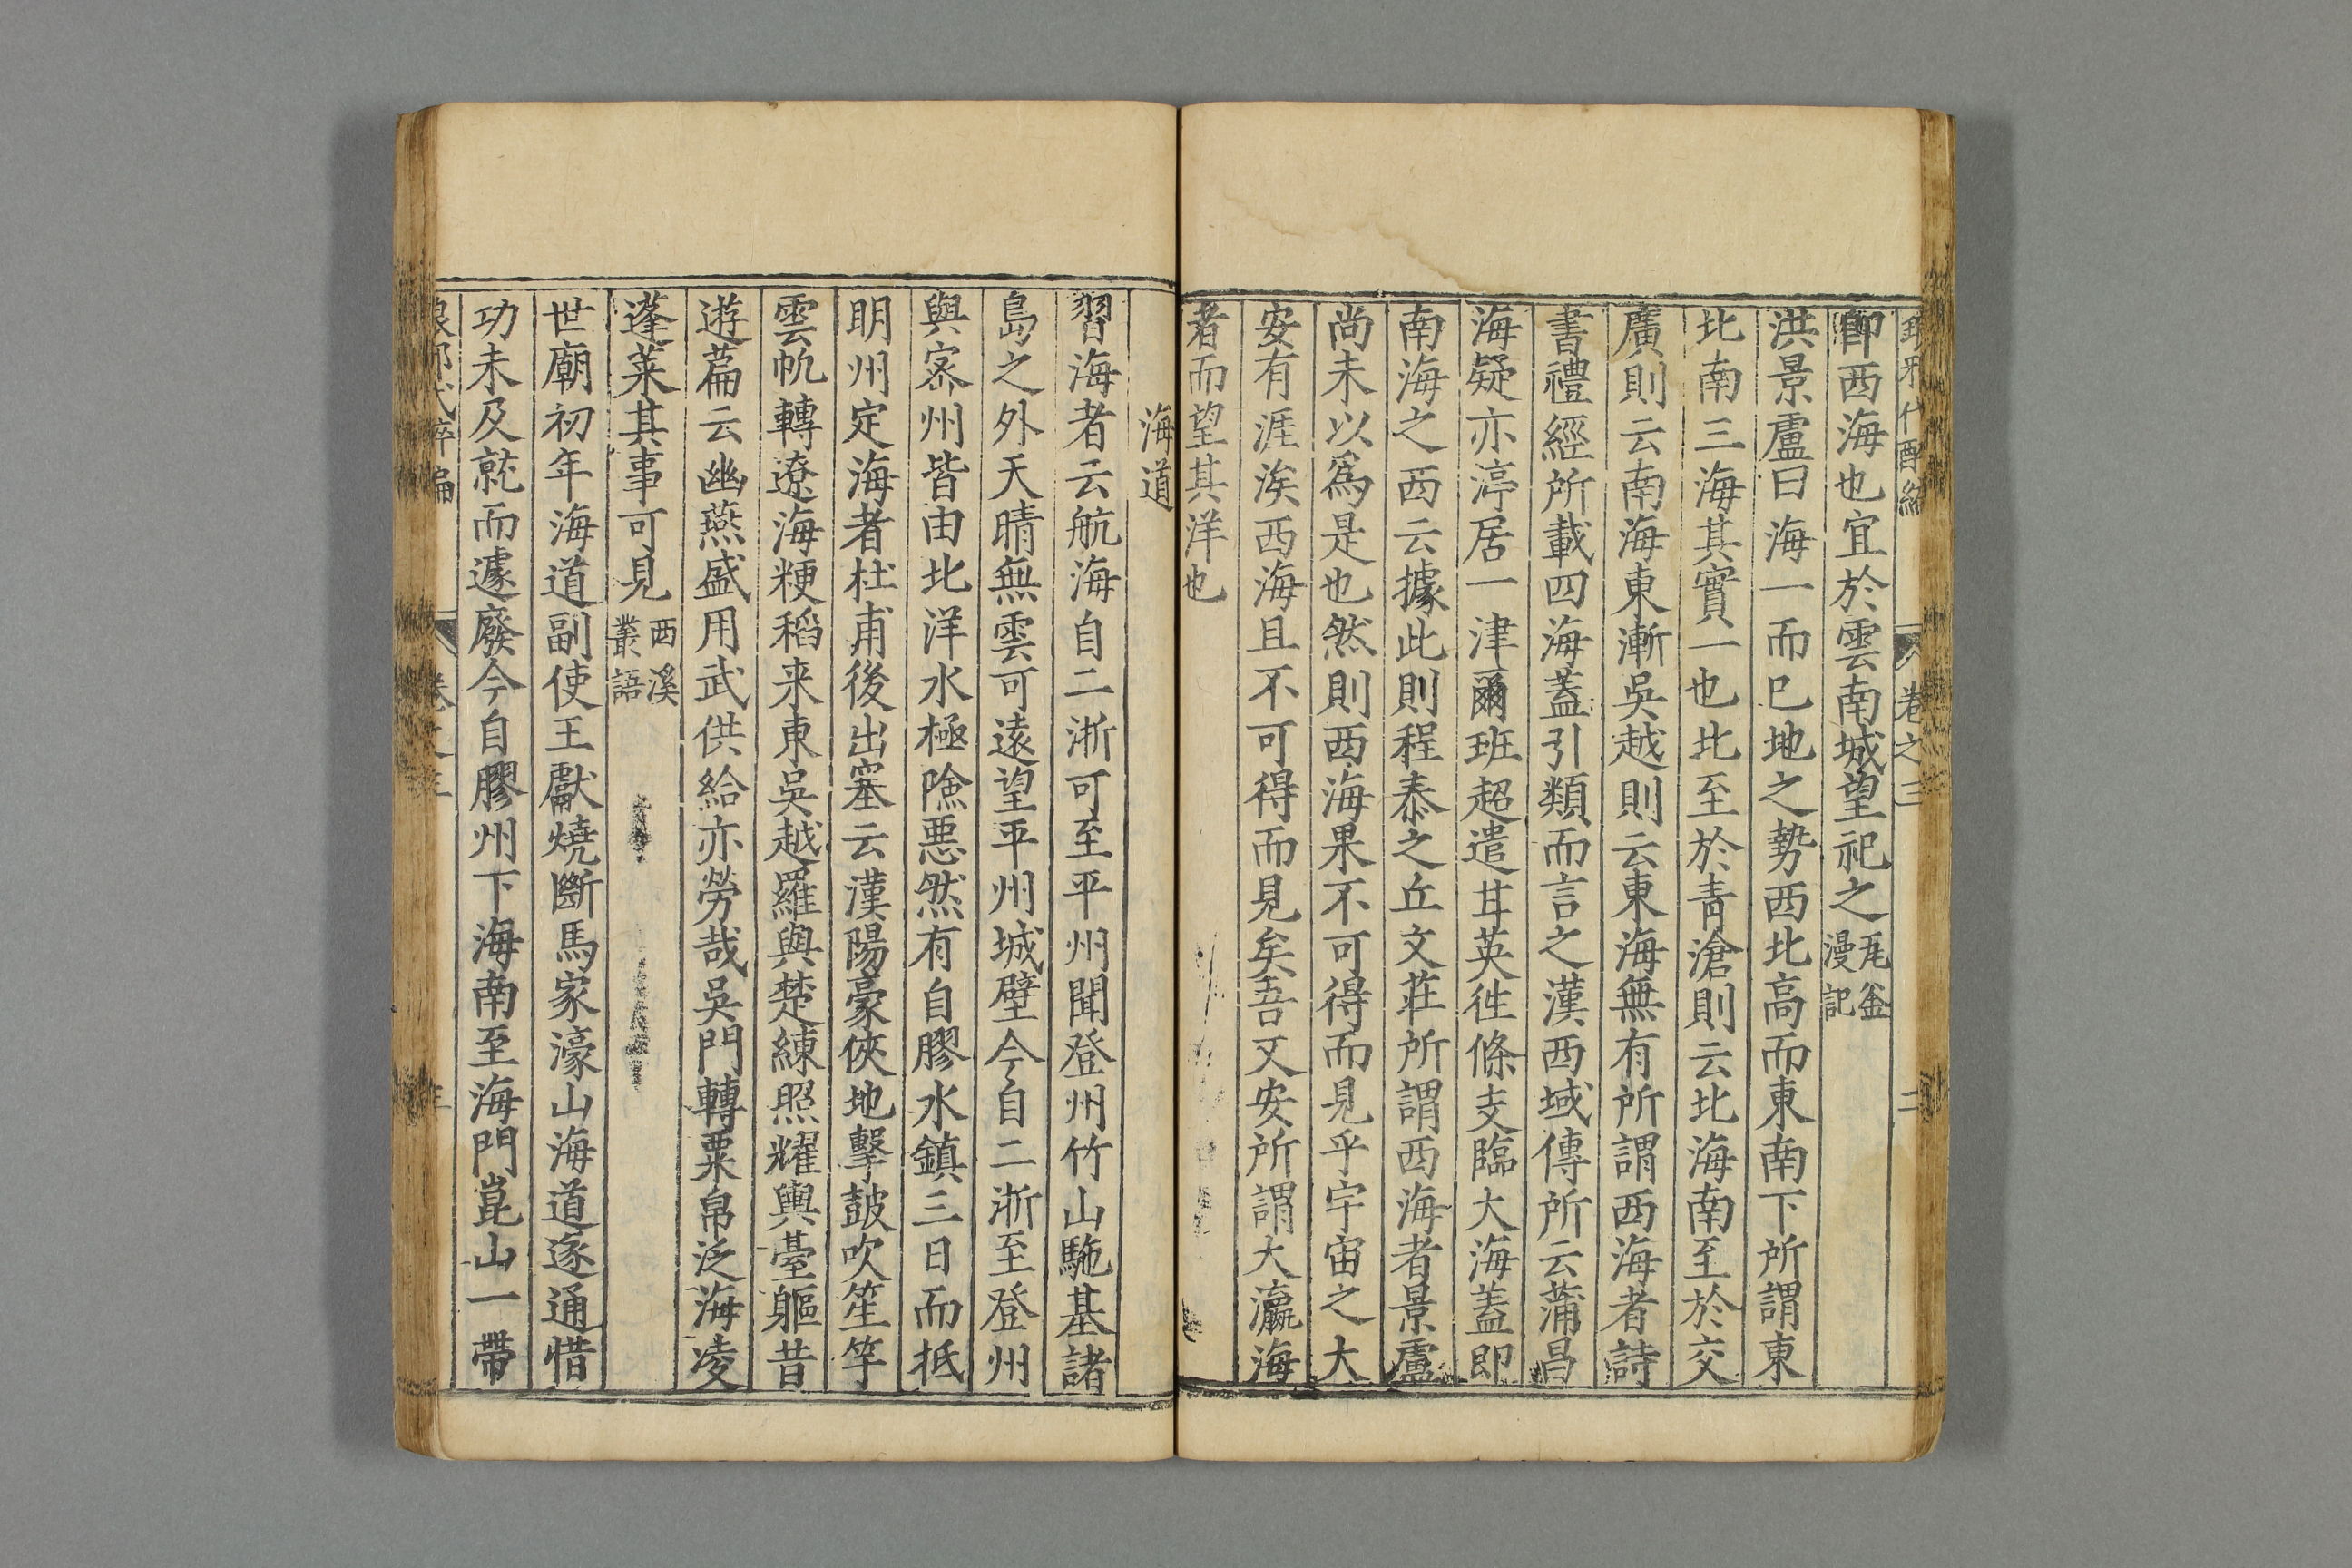 卷之三
二
即西海也宜於雲南城望祀之瓦釜漫記
洪景盧曰海一而已地之勢西北高而東南下所謂東
北南三海其實一也北至於青滄則云北海南至於交
廣則云南海東漸吳越則云東海無有所謂西海者詩
書禮經所載四海蓋引類而言之漢西域傳所云蒲昌
海疑亦渟居一津爾班超遣甘英往條支臨大海蓋即
南海之西云據此則程泰之丘文莊所謂西海者景盧
尚未以爲是也然則西海果不可得而見乎宇宙之大
安有涯涘西海且不可得而見矣吾又安所謂大瀛海
者而望其洋也
海道
習海者云航海自二浙可至平州聞登州竹山駞基諸
島之外天晴無雲可遠望平州城壁今自二浙至登州
與密州皆由北洋水極險惡然有自膠水鎮三日而抵
明州定海者杜甫後出塞云漢陽豪俠地擊鼓吹笙竽
雲帆轉遼海粳稻来東吳越羅與楚練照耀輿臺軀昔
遊萹云幽燕盛用武供給亦勞哉吳門轉粟帛泛海凌
蓬莱其事可見西溪叢語
世廟初年海道副使王獻燒斷馬家濠山海道遂通惜
功未及就而遽廢今自膠州下海南至海門崑山一帶